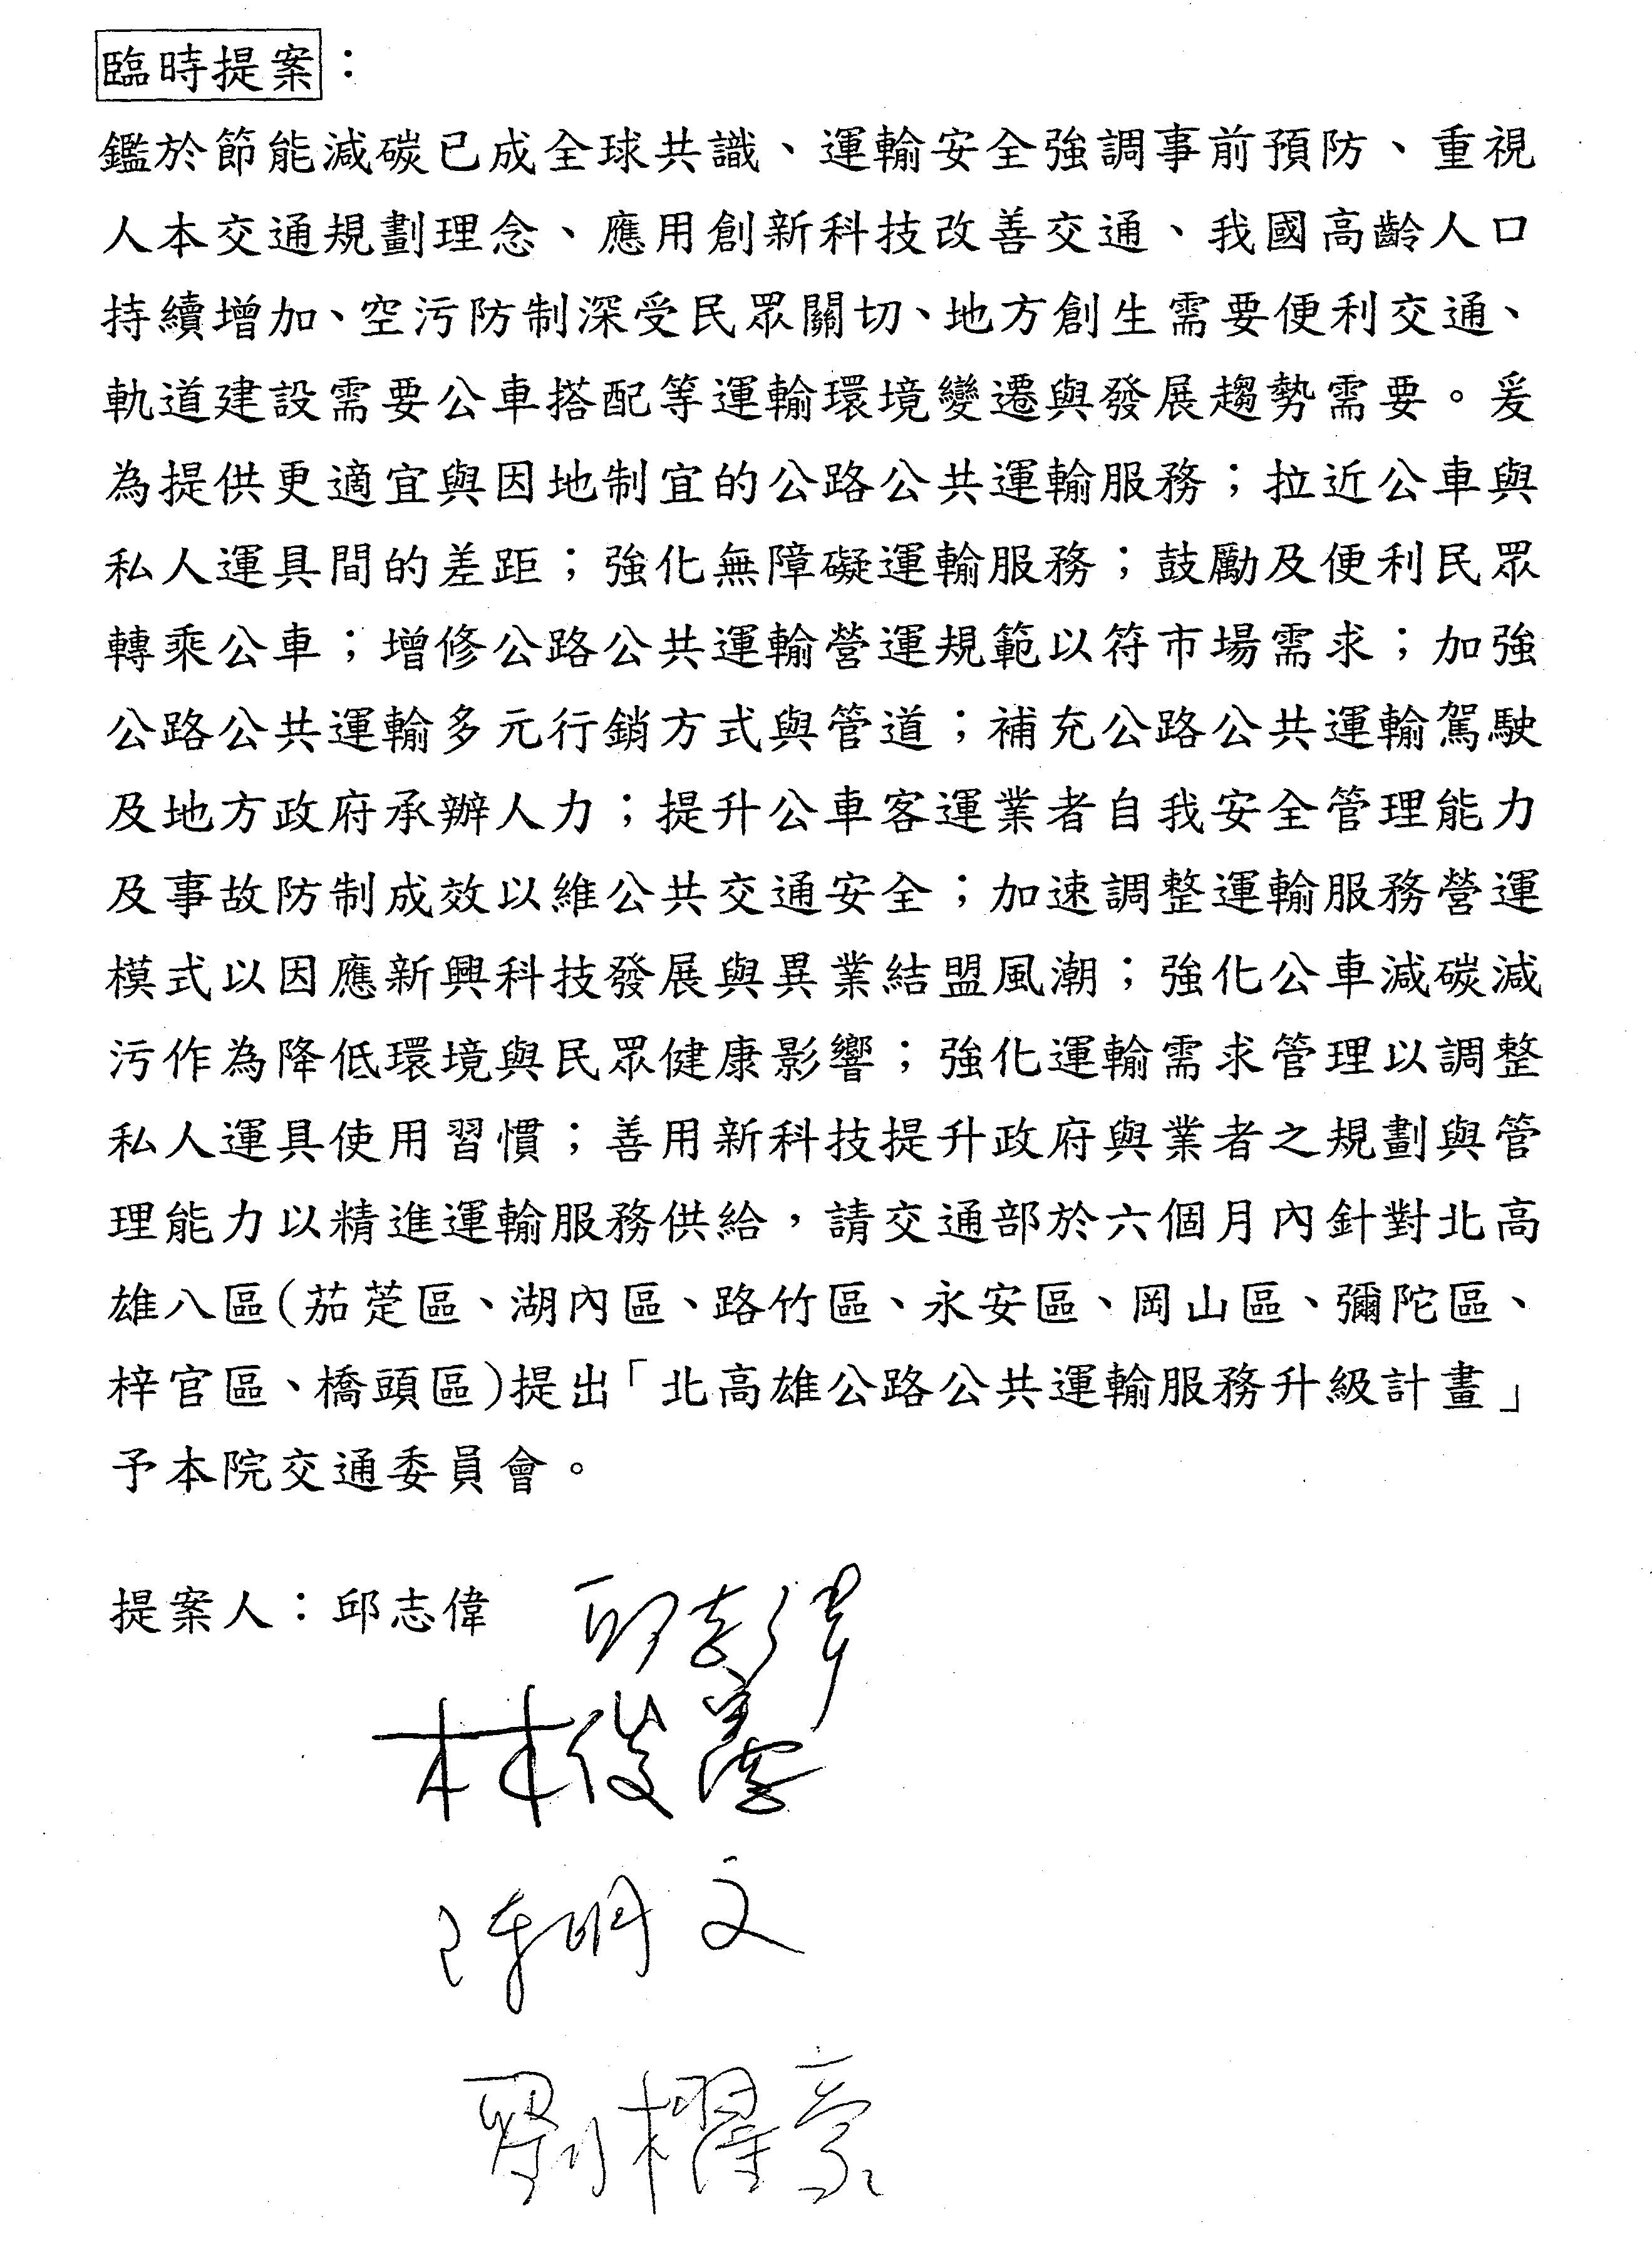 臨時提案：
鑑於節能減碳已成全球共識、運輸安全強調事前預防、重視
人本交通規劃理念、應用創新科技改善交通、我國高齡人口
持續增加、空污防制深受民眾關切、地方創生需要便利交通、
軌道建設需要公車搭配等運輸環境變遷與發展趨勢需要。爰
為提供更適宜與因地制宜的公路公共運輸服務；拉近公車與
私人運具間的差距；強化無障礙運輸服務；鼓勵及便利民眾
轉乘公車；增修公路公共運輸營運規範以符市場需求；加強
公路公共運輸多元行銷方式與管道；補充公路公共運輸駕駛
及地方政府承辦人力；提升公車客運業者自我安全管理能力
及事故防制成效以維公共交通安全；加速調整運輸服務營運
模式以因應新興科技發展與異業結盟風潮；強化公車減碳減
污作為降低環境與民眾健康影響；強化運輸需求管理以調整
私人運具使用習慣；善用新科技提升政府與業者之規劃與管
理能力以精進運輸服務供給，請交通部於六個月內針對北高
雄八區(茄萣區、湖內區、路竹區、永安區、岡山區、彌陀區、
梓官區、橋頭區)提出「北高雄公路公共運輸服務升級計畫」
予本院交通委員會。
提案人：邱志偉 邱志偉
林俊憲
陳明文
劉櫂豪